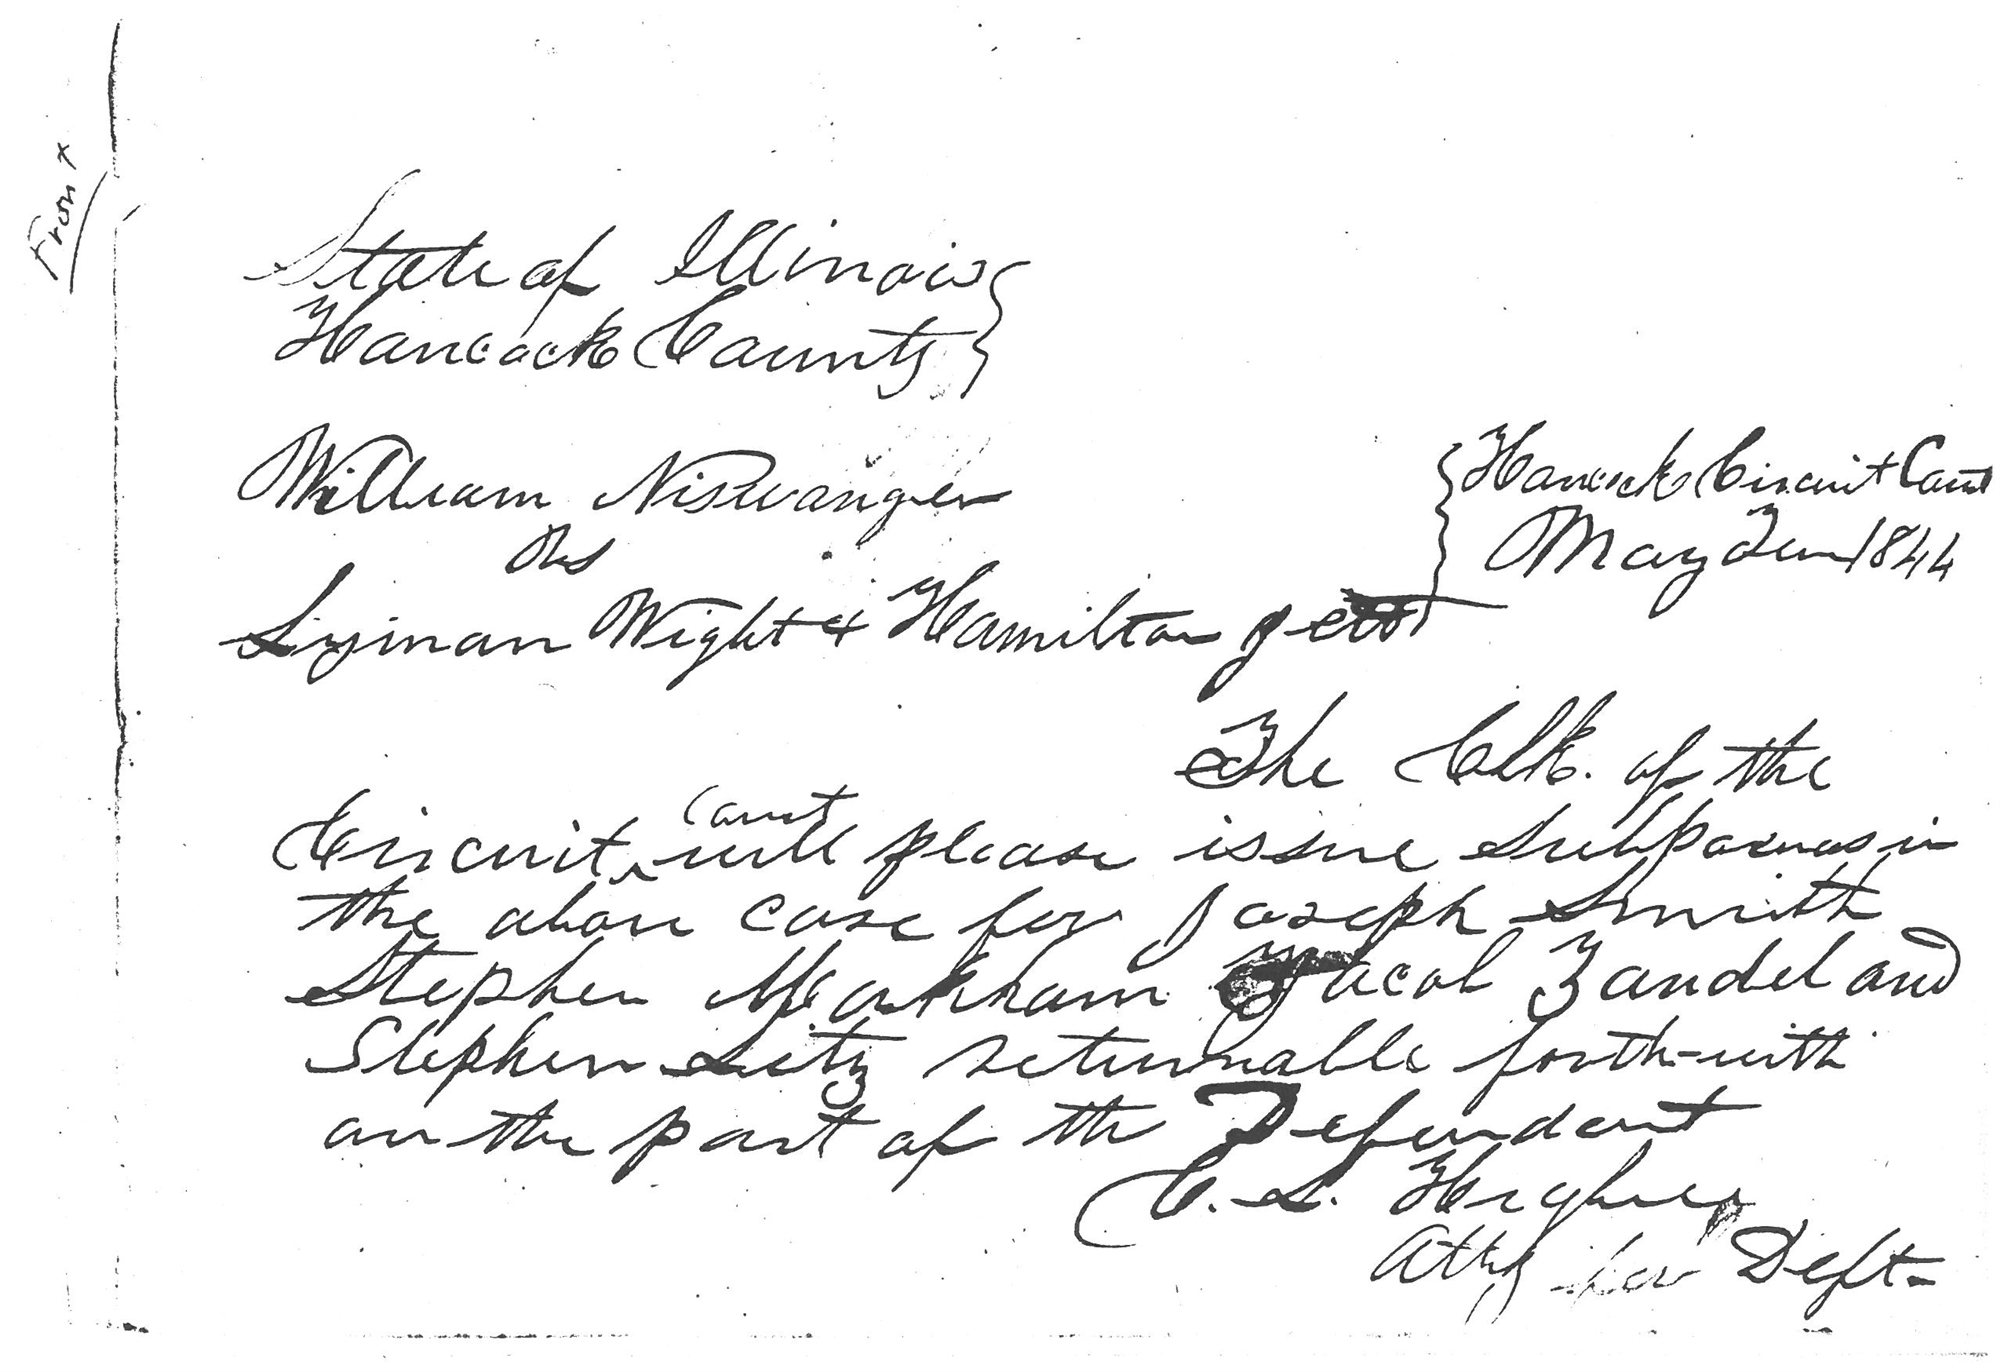 Front
State of Illinois
Hancock County
William Niswanger
vs
Lyman Wight & Hamilton Jett
Hancock Circuit Court
May Term 1844
The Clk. of the
Circuit ^ Court will please issue Subpoenas in
the above case for Joseph Smith
Stephen Markham Jacob Zandel and
Stephen Litz returnable forth-with
on the part of the Defendant
C. L. Higbee
Atty for Deft-